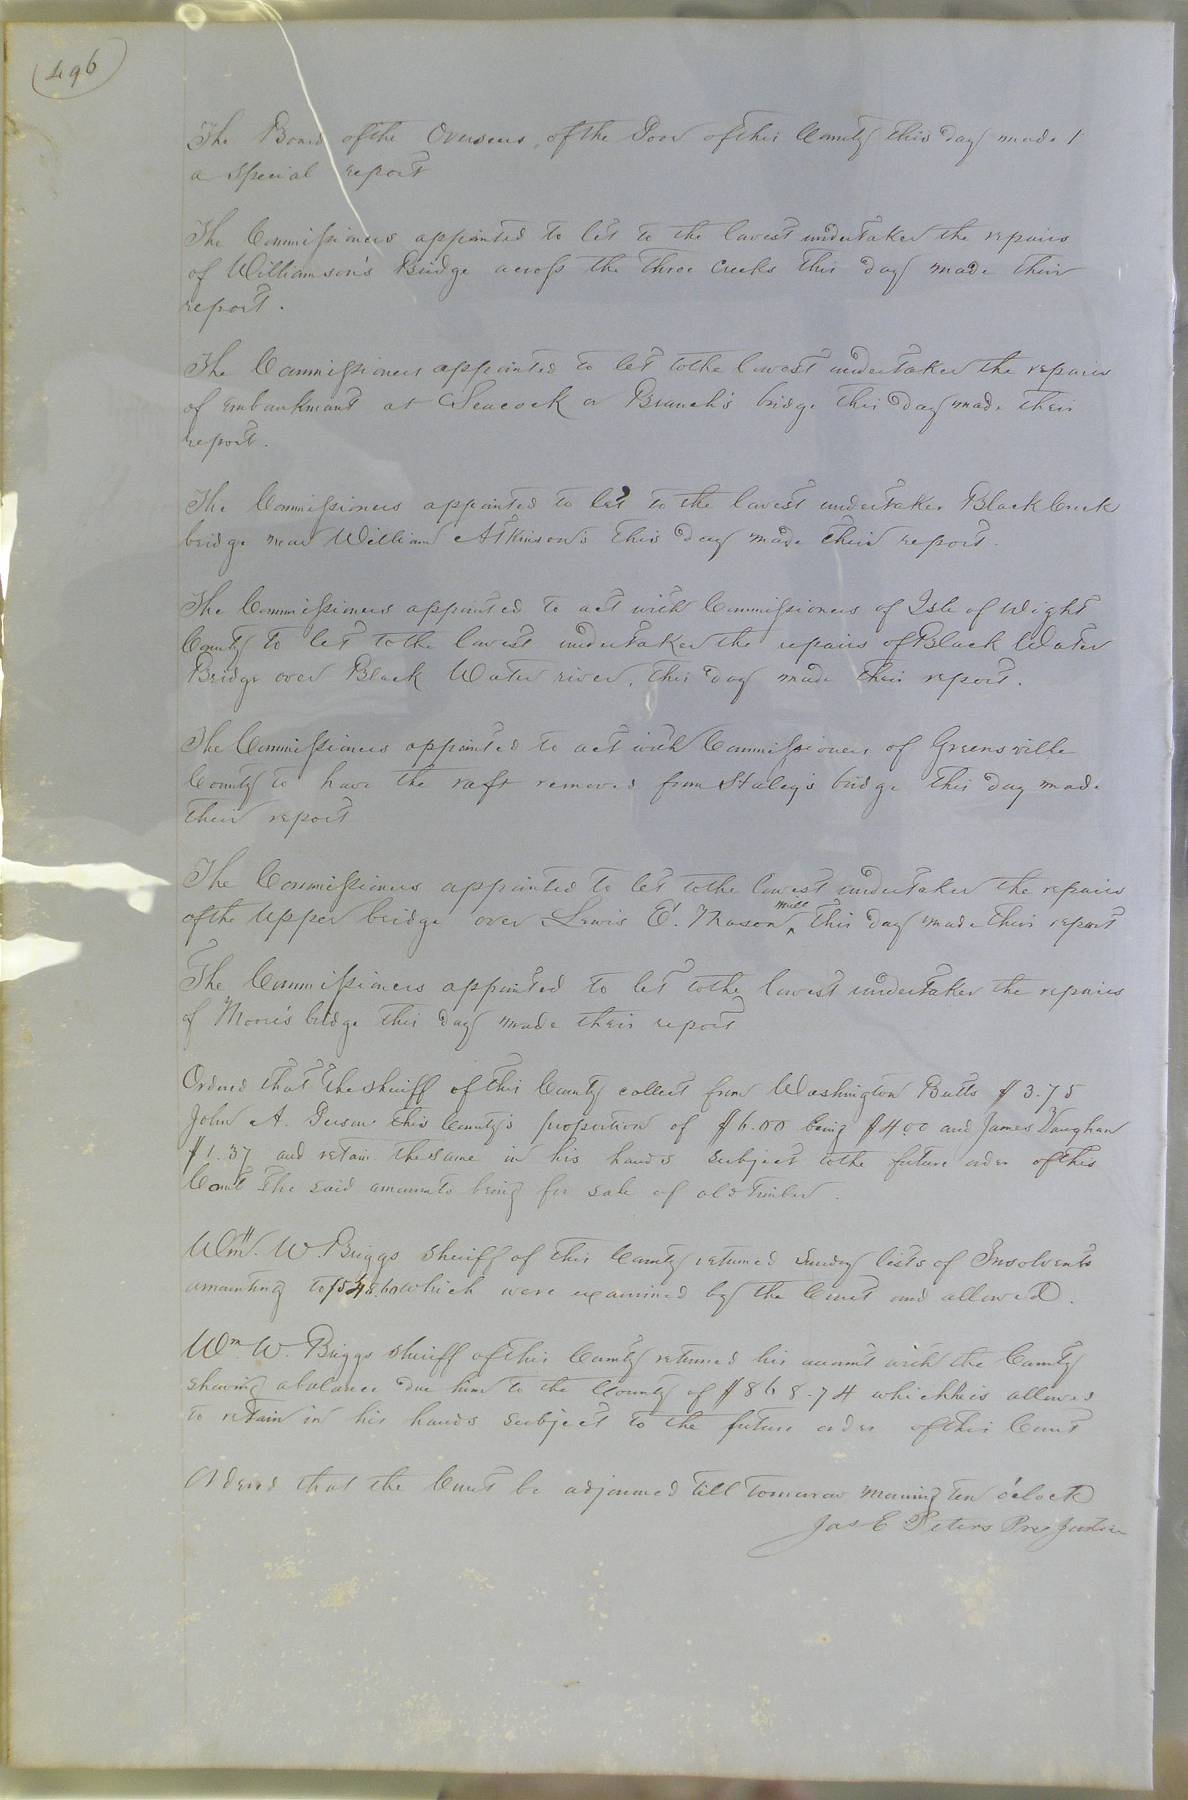 496
The Board of the Overseers of the Poor of this County this day made
a special report
The Commissioners appointed to let to the lowest undertaker the repairs
of Williamson's Bridge across the Three Creeks this day made their
report.
The Commissioners appointed to let to the lowest undertaker the repairs
of embankment at Seacock or Branch's bridge this day made their
report.
The Commissioners appointed to let to the lowest undertaker Black Creek
bridge near William Atkinson's this day made their report.
The Commissioners appointed to act with Commissioners of Isle of Wight
County to let to the lowest undertaker the repairs of Black Water
Bridge over Black Water river, this day made their report.
The Commissioners appointed to act with Commissioners of Greensville
County to have the raft removed from Staley's bridge this day made
their report
The Commissioners appointed to let to the lowest undertaker the repairs
of the Upper bridge over Lewis E. Mason mill this day made their report
The Commissioners appointed to let to the lowest undertaker the repairs
of Moore's bridge this day made their report
Ordered that the sheriff of this County collect from Washington Butts $3.75
John A. Person this County's proportion of $6.00 being $4.00 and James Vaughan
$1.37 and retain the same in his hands subject to the future order of this
Court the said amounts being for sale of old timber.
Wm. W. Briggs sheriff of this County returned sundry lists of Insolvents
amounting to which were examined by the Court and allowed.
Wm. W. Briggs sheriff of this County returned his account with the County
showing a balance due him to the County of $868.74 which he is allowed
to retain in his hands subject to the future order of this Court
Ordered that the Court be adjourned till tomorrow morning ten o'clock
Jas E Peters Pres Justice